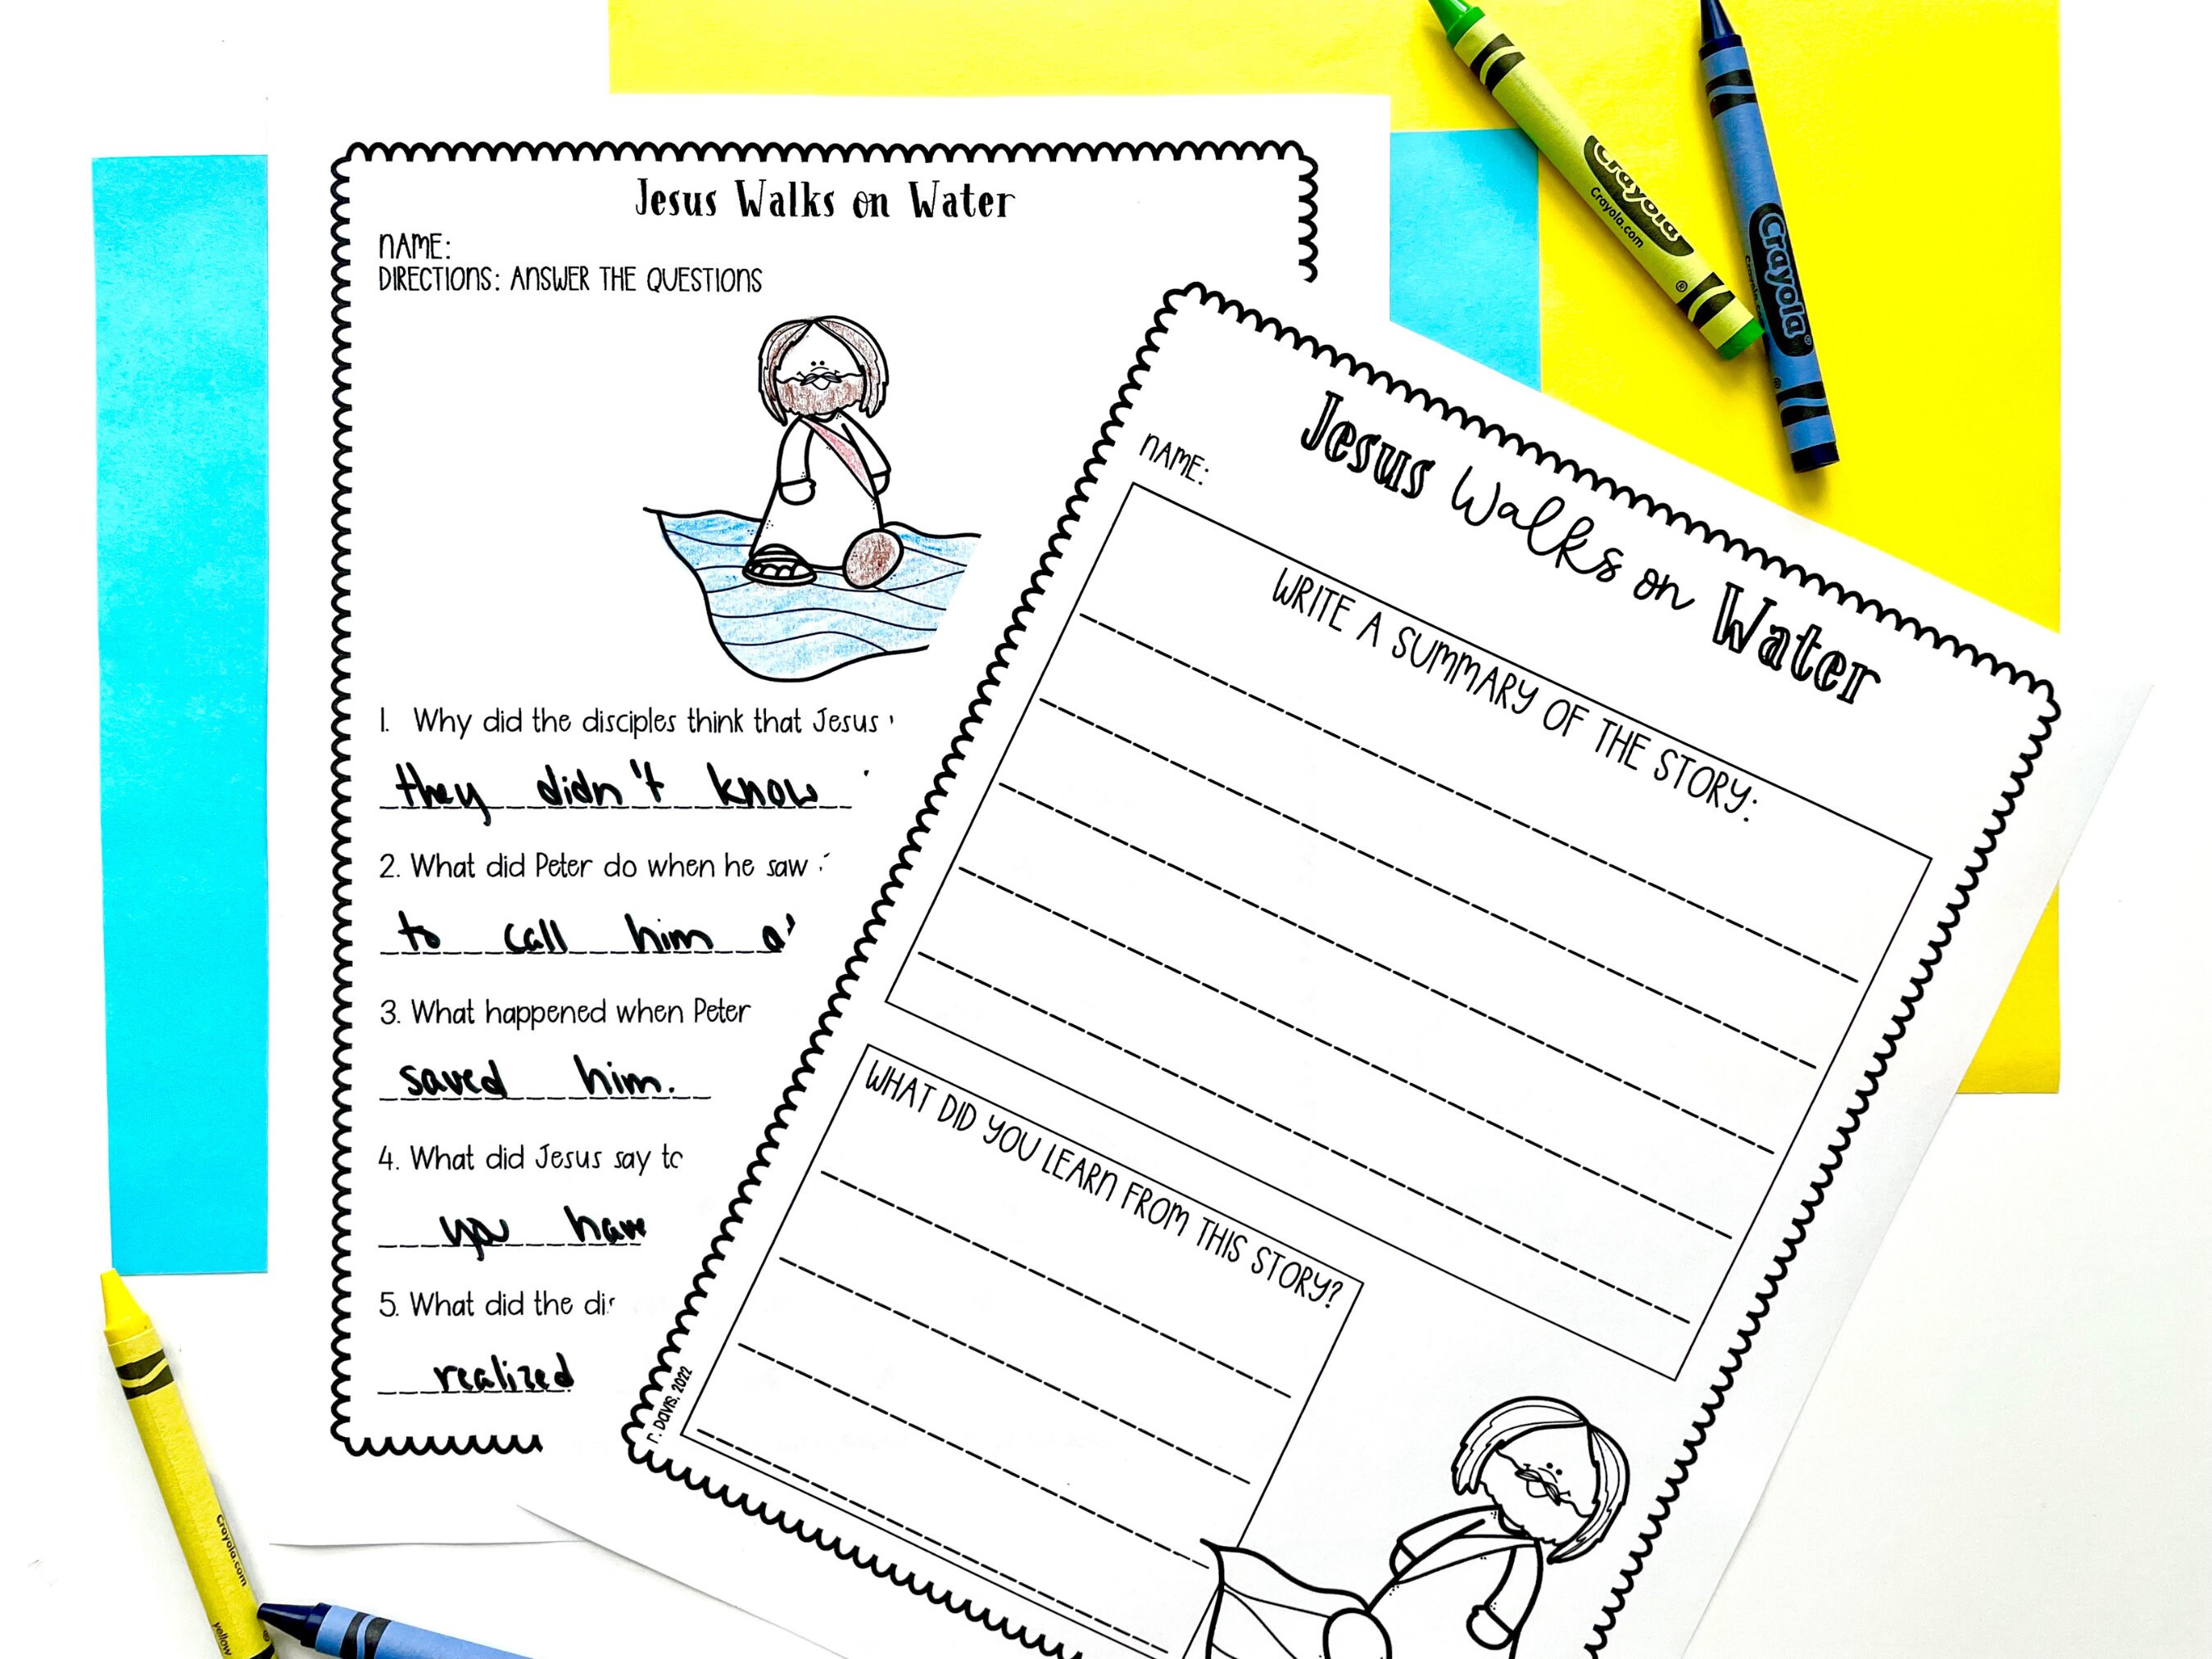 Jesus Walks on Water
NAME:
DIRECTIONS: ANSWER THE QUESTIONS
1. Why did the disciples think that Jesus
they didn't know
2. What did Peter do when he saw
to call him
3. What happened when Peter
saved him.
4. What did Jesus say to
you have
5. What did the
realized
Jesus Walks on Water
NAME:
WRITE A SUMMARY OF THE STORY:
WHAT DID YOU LEARN FROM THIS STORY?
r. DAVIS, 2022
Crayola
Crayola.com
®
Crayola
®
Crayola.com
yellow